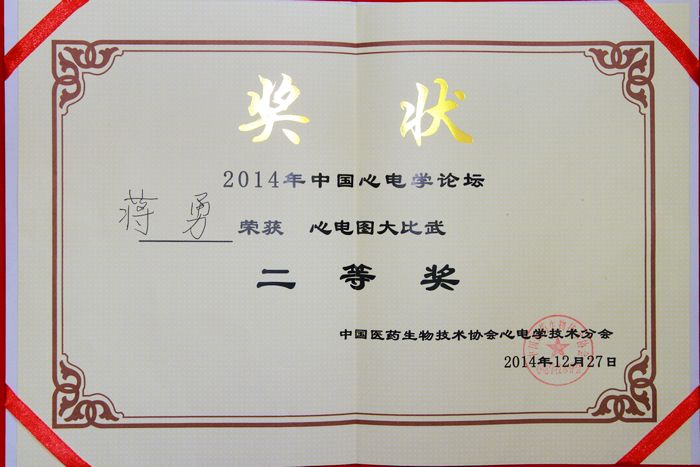 奖 状
2014年中国心电学论坛
蒋勇 荣获 心电图大比武
二 等 奖
中国医药生物技术协会心电学技术分会
2014年12月27日